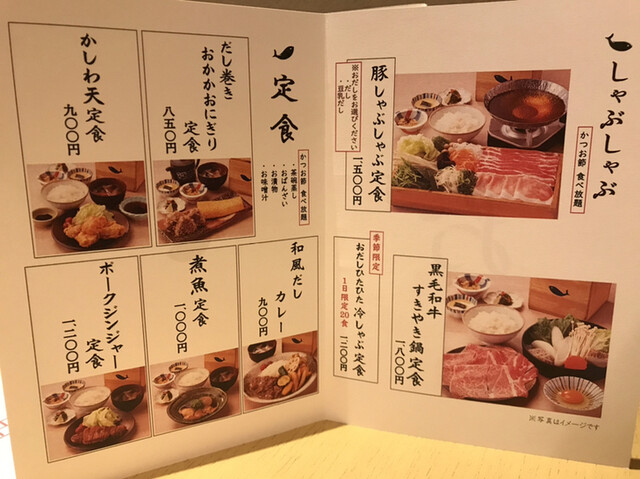 しゃぶしゃぶ
かつお節 食べ放題
豚しゃぶしゃぶ定食
一五〇〇円
※おだしをお選びください
・だし
・豆乳だし
黒毛和牛
すきやき鍋定食
一八〇〇円
季節限定
おだしひたひた 冷しゃぶ定食
1日限定20食
一二〇〇円
※写真はイメージです
定食
かつお節 食べ放題
・茶碗蒸し
・おばんざい
・お漬物
・お味噌汁
だし巻き
おかかおにぎり
定食
八五〇円
かしわ天定食
九〇〇円
和風だし
カレー
九〇〇円
煮魚定食
一〇〇〇円
ポークジンジャー
定食
一二〇〇円